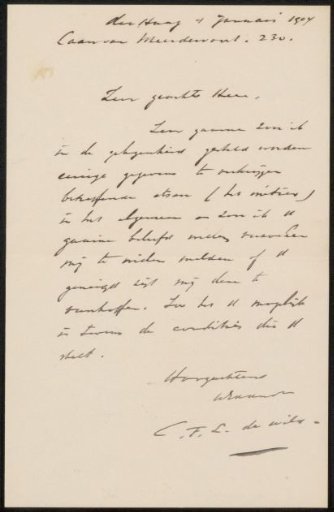 den Haag 1 Januari 1904
Laan van Meerdervoort. 230.
Zeer geachte Heer.
Zeer gaarne zou ik
in de gelegenheid gesteld worden
eenige gegevens te verkrijgen
betreffende (het métier)
in het algemeen en zou ik U
gaarne beleefd willen verzoeken
mij te willen melden of U
geneigd zijt mij deze te
verschaffen. Zoo het U mogelijk
is tevens de condities die U
stelt.
Hoogachtend
C. F. L. de Wild